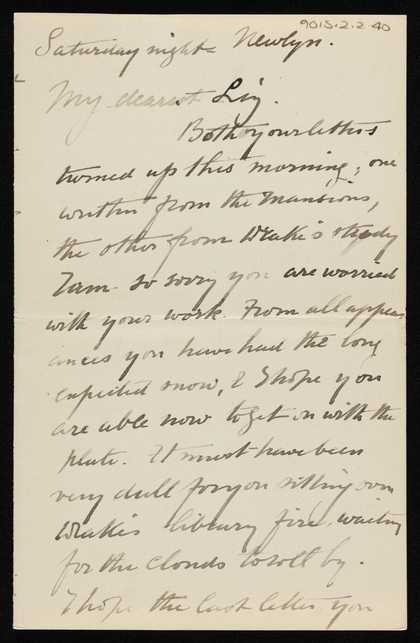 9015.2.2.40
Saturday night Newlyn.
My dearest Liz.
Both your letters
turned up this morning, one
written from the Mansions,
the other from Weake's study
I am so sorry you are worried
with your work. From all appear
ances you have had the long
expected snow, & I hope you
are able now to get on with the
plate. It must have been
very dull for you sitting over
Weake's library fire, waiting
for the clouds to roll by.
I hope the last letter you